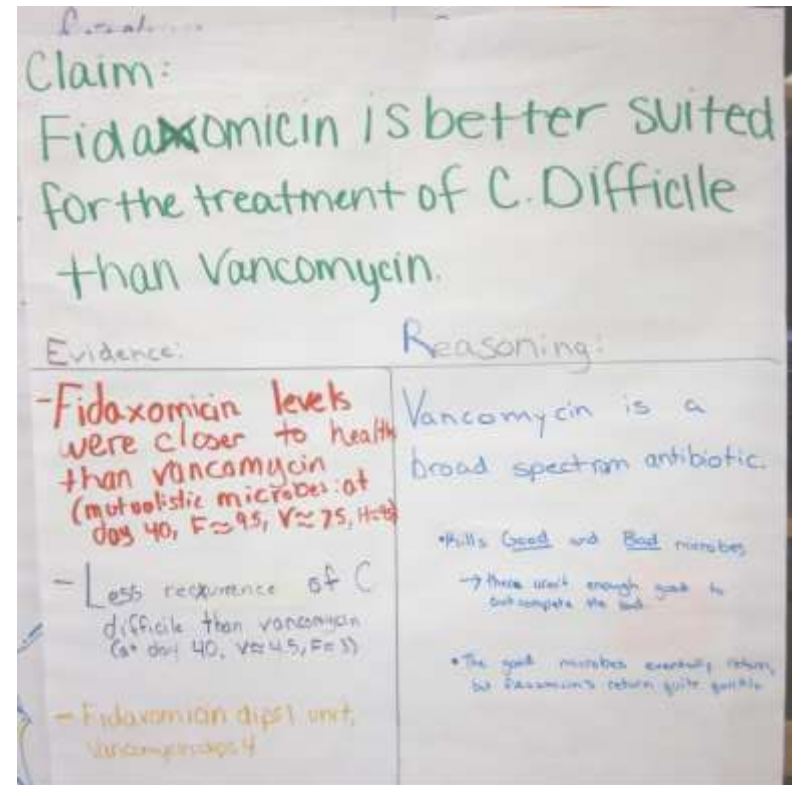 Claim:
Fidaxomicin is better suited
for the treatment of C. Difficile
than Vancomycin.
Evidence:
- Fidaxomicin levels
were closer to health
than vancomycin
(mutualistic microbes: at
day 40, F≈9.5, V≈7.5,
- Less recurrence of C
difficile than vancomycin
(at day 40, V≈4.5, F≈
- Fidaxomicin dips 1 unit,
Vancomycin dips 4
Reasoning:
Vancomycin is a
broad spectrum antibiotic.
• Kills Good and Bad microbes
→ there aren't enough good to
outcompete the bad
• The good microbes eventually return,
but return quite quickly